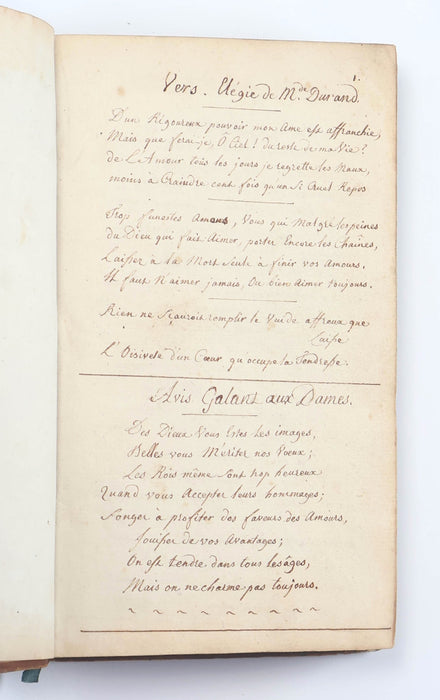 1.
Vers. Elégie de M.de Durand.
D'un Rigoureux pouvoir mon Ame est affranchie,
Mais que ferai-je, Ô Ciel! du reste de ma Vie?
de L'Amour tous les jours je regrette les Maux,
moins à Craindre cent fois qu'un Si Cruel Repos
Trop funestes Amans, Vous qui Malgré les peines
du Dieu qui fait Aimer, portez Encore les Chaînes,
Laissez à la Mort Seule à finir vos Amours.
Il faut N'aimer jamais, Ou bien Aimer toujours.
Rien ne Sçauroit remplir le Vuide affreux que
Laisse
L'Oisiveté d'un Cœur qu'occupe la Tendresse.
Avis Galant aux Dames.
Des Dieux Vous Estes Les images,
Belles vous Méritez nos Vœux;
Les Rois même Sont trop heureux
Quand vous Accepter leurs hommages;
Songez à profiter des faveurs des Amours,
Jouissez de vos Avantages;
On est tendre dans tous les âges,
Mais on ne charme pas toujours.